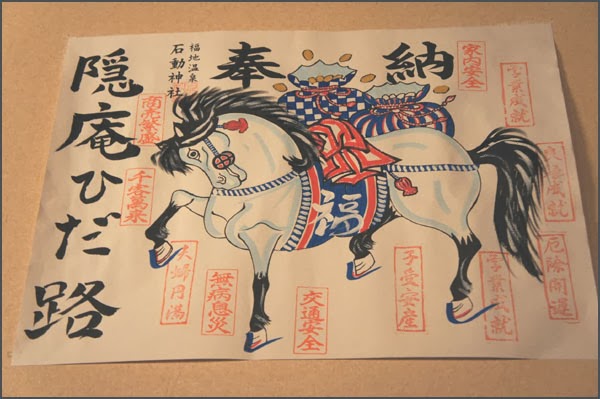 奉納
福地温泉
石動神社
隠庵ひだ路
福
家内安全
学業成就
良縁成就
厄除開運
学業成就
交通安全
無病息災
夫婦円満
千客萬来
商売繁盛